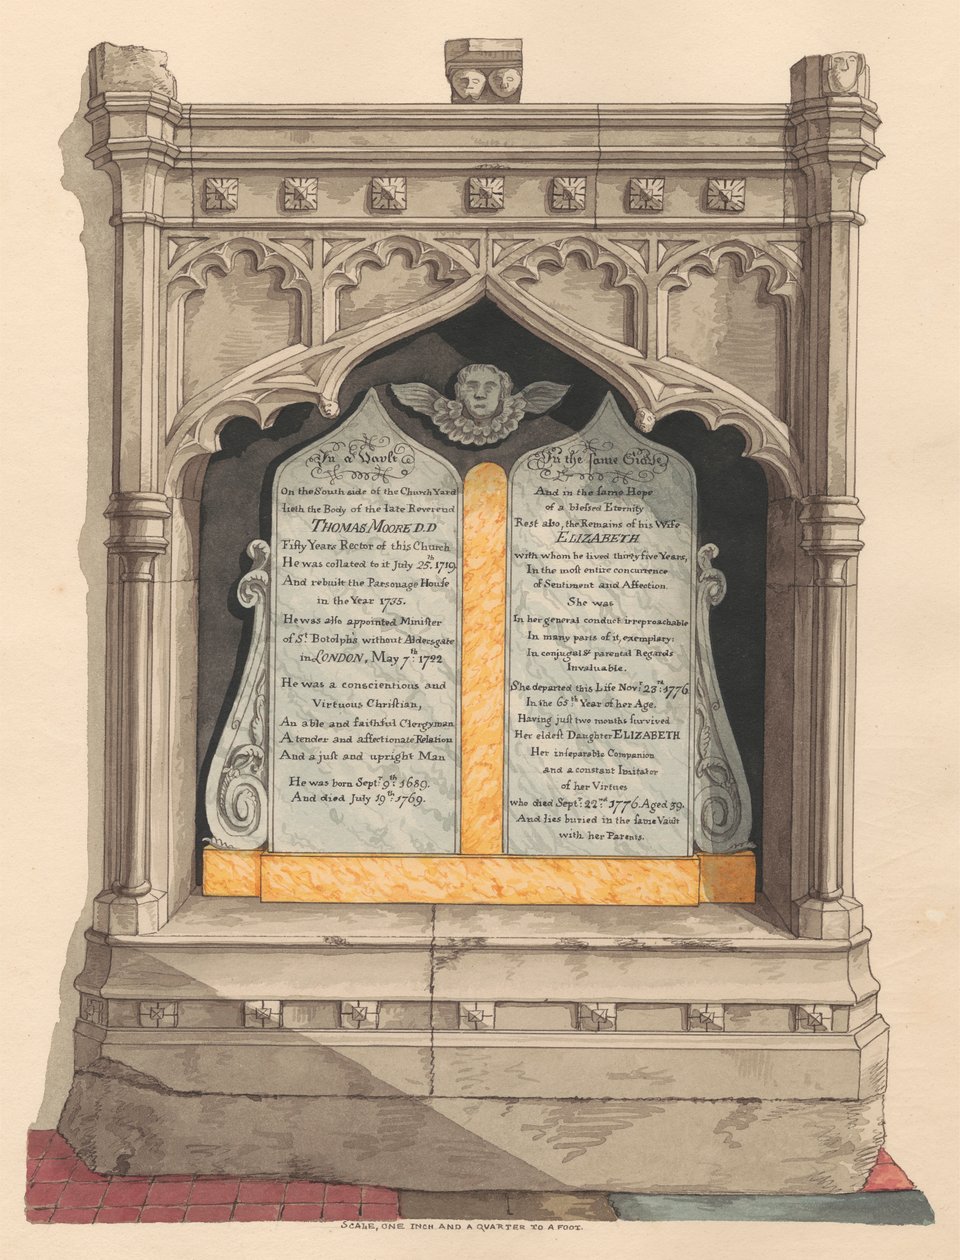 In a Vault
On the South side of the Church Yard
lieth the Body of the late Reverend
THOMAS MOORE D.D
Fifty Years Rector of this Church
He was collated to it July 25.th 1719.
And rebuilt the Parsonage House
in the Year 1735.
He was also appointed Minister
of St. Botolph's without Aldersgate
in LONDON, May 7th: 1722
He was a conscientious and
Virtuous Christian,
An able and faithful Clergyman
A tender and affectionate Relation
And a just and upright Man
He was born Septr. 9th: 1689.
And died July 19th 1769.
In the same Grave
And in the same Hope
of a blessed Eternity
Rest also, the Remains of his Wife
ELIZABETH
with whom he lived thirty five Years,
In the most entire concurrence
of Sentiment and Affection.
She was
In her general conduct irreproachable
In many parts of it, exemplary:
In conjugal & parental Regards
Invaluable.
She departed this Life Novr. 23rd: 1776
In the 65th Year of her Age.
Having just two months survived
Her eldest Daughter ELIZABETH
Her inseparable Companion
and a constant Imitator
of her Virtues
who died Septr. 22nd: 1776. Aged 39.
And lies buried in the same Vault
with her Parents.
SCALE, ONE INCH AND A QUARTER TO A FOOT.